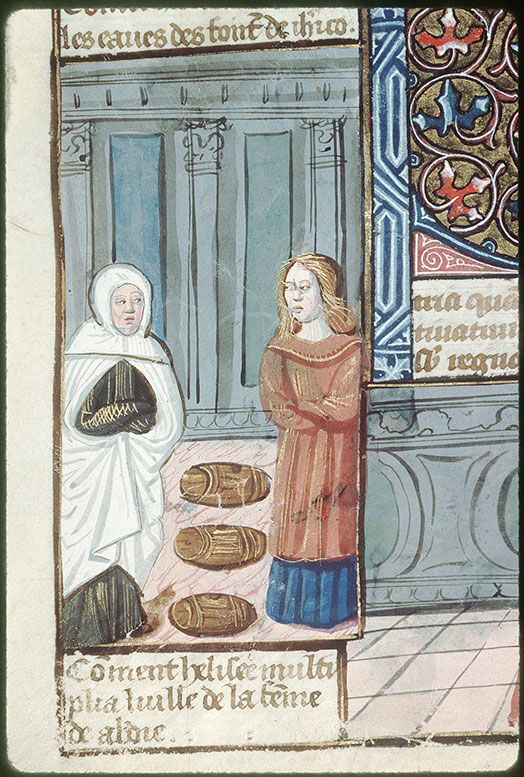 les eaues des font. de ihico.
nra qua
tiuatiui
sb regno
Com̃ent helisee multi
plia luille de la fem̃e
de abdie